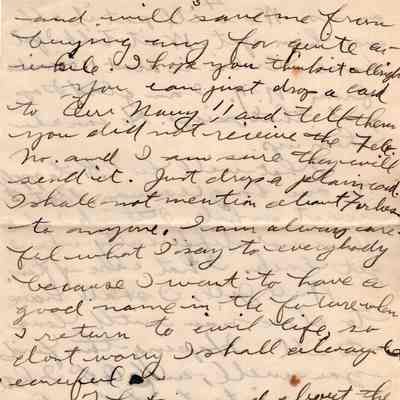 and will save me from
buying any for quite a-
while. I hope you think it alright
You can just drop a card
to "Our Navy" and tell them
you did not receive the Feb.
No. and I am sure they will
send it. Just drop a plain card.
I shall not mention about Forbes
to anyone. I am always care-
ful what I say to everybody
because I want to have a
good name in the future when
I return to civil life, so
dont worry I shall always be
careful.
about the